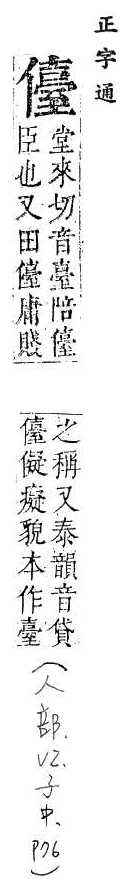 正字通
儓
堂來切音臺陪儓
臣也又田儓庸賤
之稱又泰韻音貸
儓儗癡貌本作臺
(人部.V2.子中.P76)